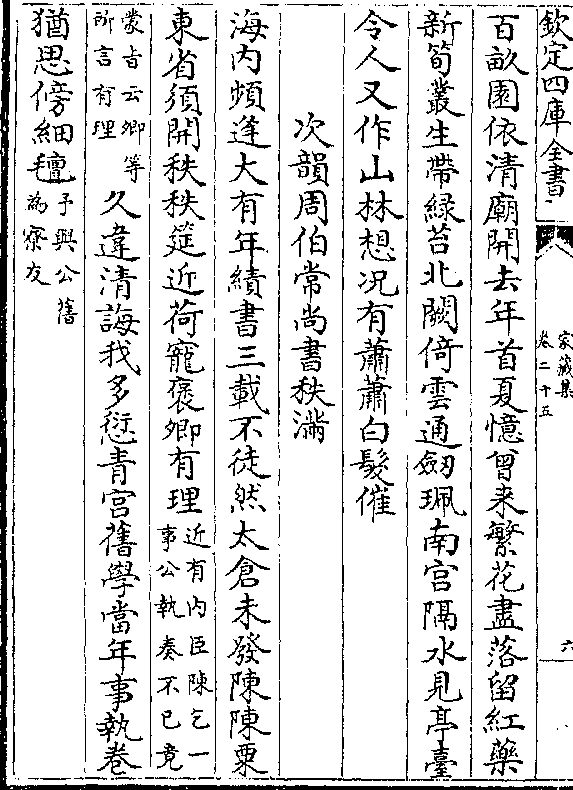 欽定四庫全書
家藏集
卷二十五
六
百畝園依清廟開去年首夏憶曾来繁花盡落留紅藥
新筍叢生帶緑苔北闕倚雲通劔珮南宫隔水見亭臺
令人又作山林想况有蕭蕭白髮催
次韻周伯常尚書秩滿
海内頻逢大有年績書三載不徒然太倉未發陳陳粟
東省須開秩秩筵近荷寵褒卿有理近有内臣陳乞一
事公執奏不已竟
蒙旨云卿等
所言有理
久違清誨我多愆青宫舊學當年事執卷
猶思傍細氊予與公舊
為寮友